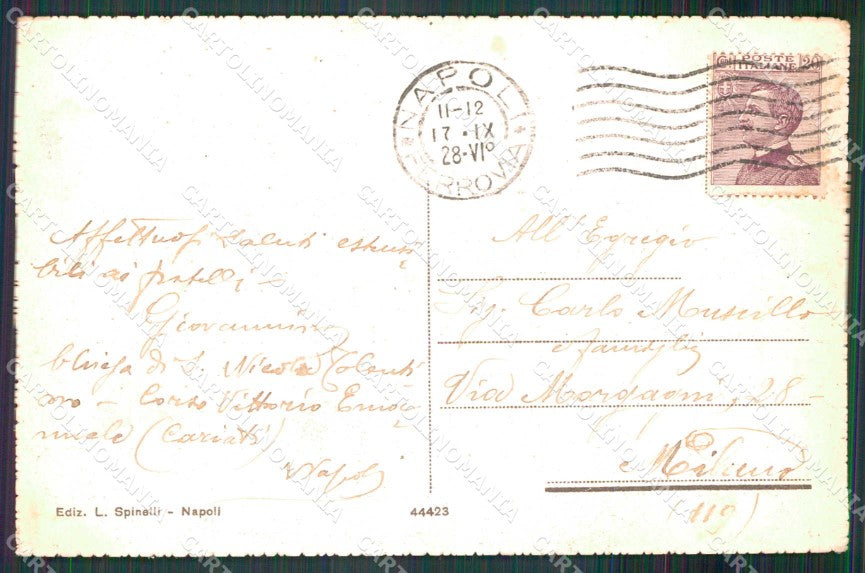 NAPOLI
11-12
17 · IX
28·VI°
FERROVIA
POSTE
ITALIANE 20
Affettuosi saluti estensi
bili ai fratelli -
Giovannino
Chiesa di S. Nicola Tolenti
no - Corso Vittorio Ema
nuele (Cariati)
Napoli
All' Egregio
Sig. Carlo Muscillo
e famiglia
Via Morgagni, 28 -
Milano
(119)
Ediz. L. Spinelli - Napoli
44423
CARTOLINOMANIA